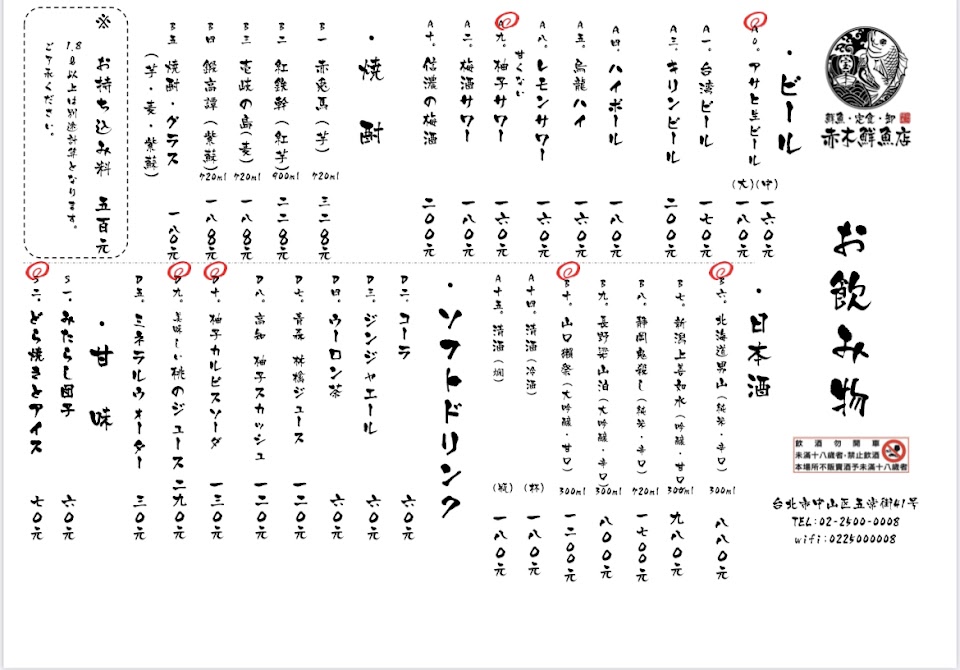 鮮魚・定食・卸
赤木鮮魚店
お飲み物
飲酒勿開車
未滿十八歲者・禁止飲酒
本場所不販賣酒予未滿十八歲者
台北市中山区五常街41号
TEL:02-2500-0008
wifi:0225000008
・ビール
A0。アサヒ生ビール (中) 一六0元
(大) 一八0元
A一。台湾ビール 一七0元
A三。キリンビール 二00元
A四。ハイボール 一八0
A五。烏龍ハイ 一六0元
A八。レモンサワー 一六0元
甘くない
A九。柚子サワー 一六0元
A二。梅酒サワー 一八0元
A十。信濃の梅酒 二00元
・焼酎
B一 赤兎馬(芋) 720ml 三二00元
B二 紅鉄幹(紅芋) 900ml 二二00元
B三 壱岐の島(麦) 720ml 一八00元
B四 鍛高譚(紫蘇) 720ml 一八00元
B五 焼酎・グラス 一八0元
(芋・麦・紫蘇)
※ お持ち込み料 五百元
1.8以上は別途計算となります。
ご了承ください。
・日本酒
B六。北海道男山(純米・辛口) 300ml 八八0元
B七。新潟上善如水(吟醸・甘口) 300ml 九八0元
B八。静岡鬼殺し(純米・辛口) 720ml 一七00元
B九。長野梁山泊(大吟醸・辛口) 300ml 八00元
B十。山口獺祭(大吟醸・甘口) 300ml 一二00元
A十四。清酒(冷酒) (杯) 一八0元
A十五。清酒(燗) (瓶) 一八0元
・ソフトドリンク
D二。コーラ 六0元
D三。ジンジャエール 六0元
D四。ウーロン茶 六0元
D七。青森 林檎ジュース 一二0元
D八。高知 柚子スカッシュ 一二0元
D十。柚子カルピスソーダ 一三0元
D九。美味しい桃のジュース 二九0元
D五。ミネラルウォーター 三0元
・甘味
S一。みたらし団子 六0元
S二。どら焼きとアイス 七0元